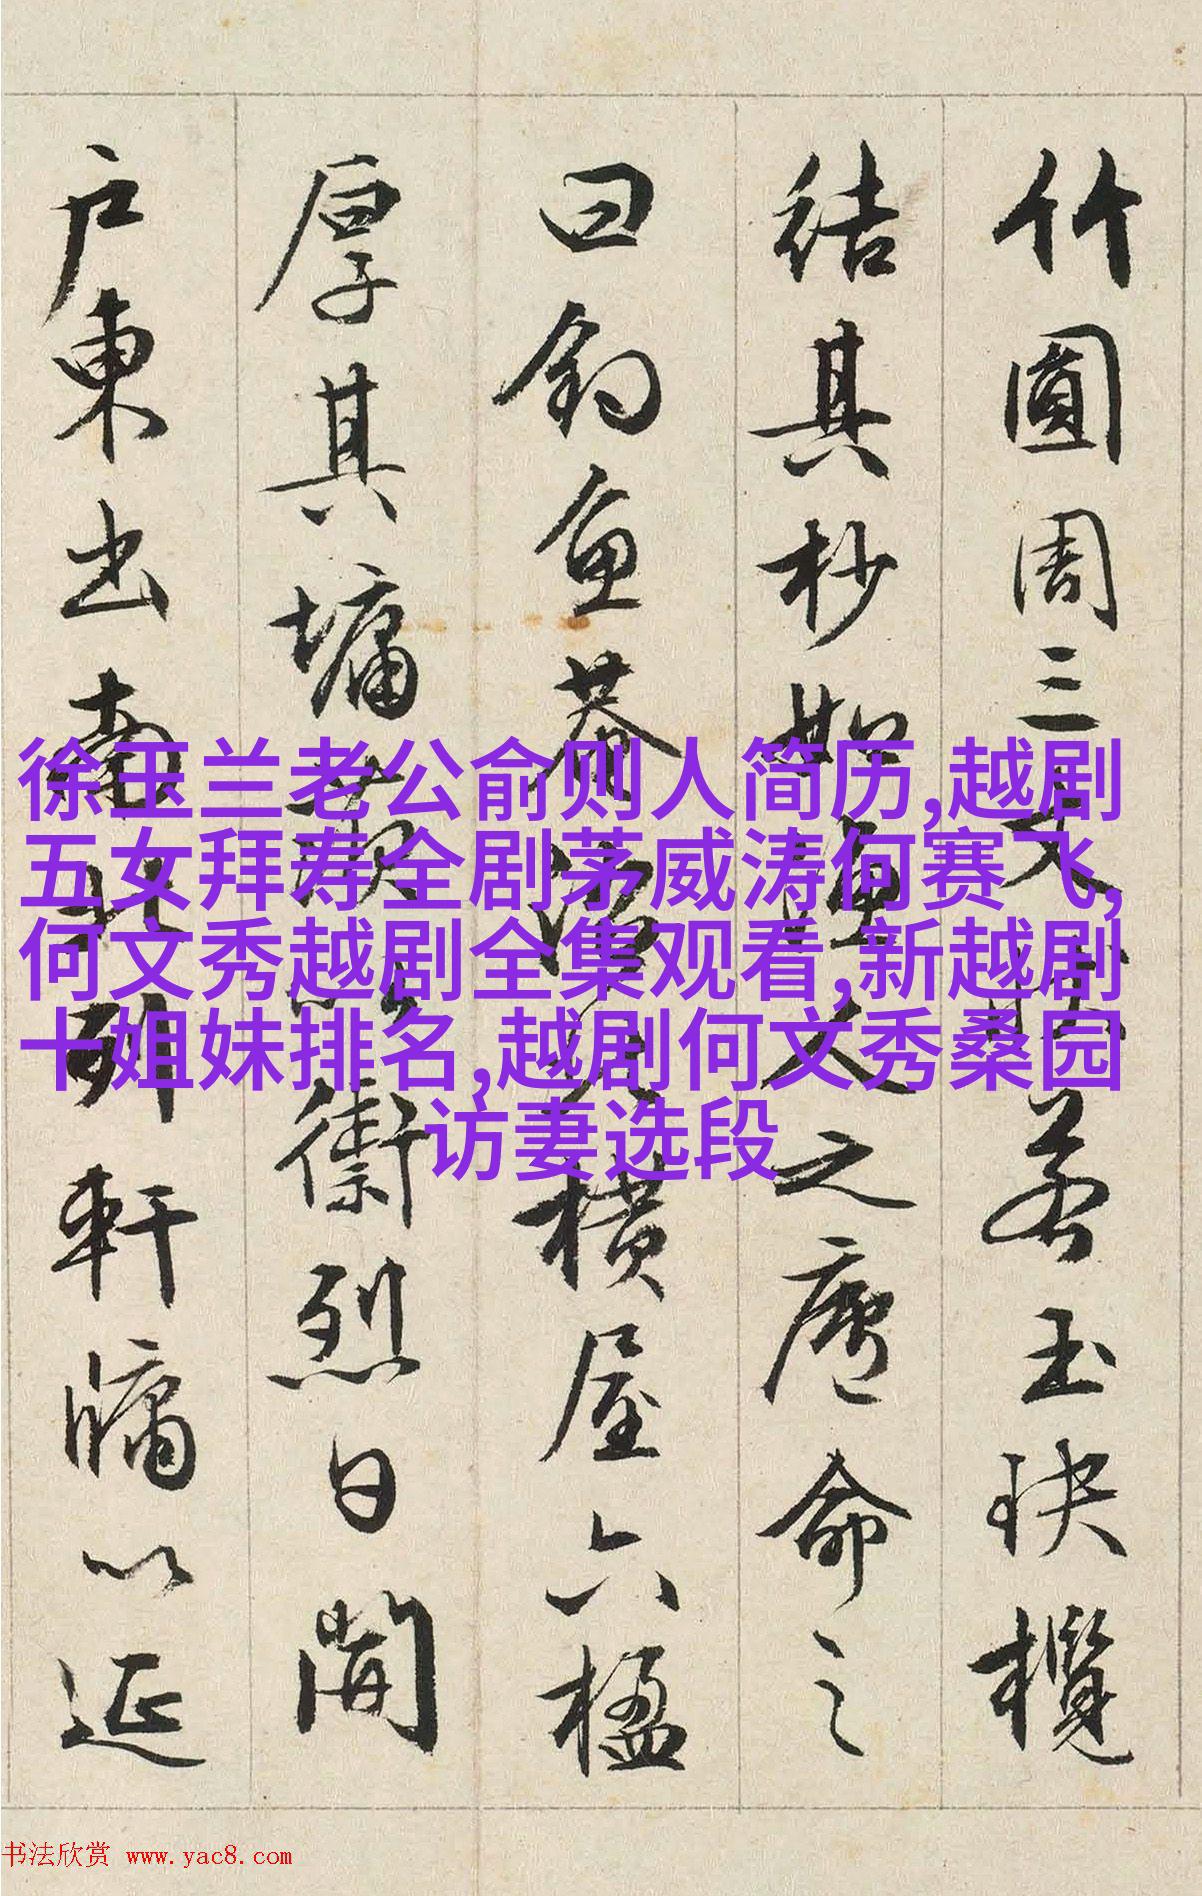 竹圓周三若玉玦欖
結其杪之廬命之
曰釣魚菴橫屋六楹
厚其墉以禦烈日開
戶東出南北列軒牖以延
徐玉兰老公俞则人简历,越剧
五女拜寿全剧茅威涛何赛飞,
何文秀越剧全集观看,新越剧
十姐妹排名,越剧何文秀桑园
访妻选段
书法欣赏 www.yac8.com